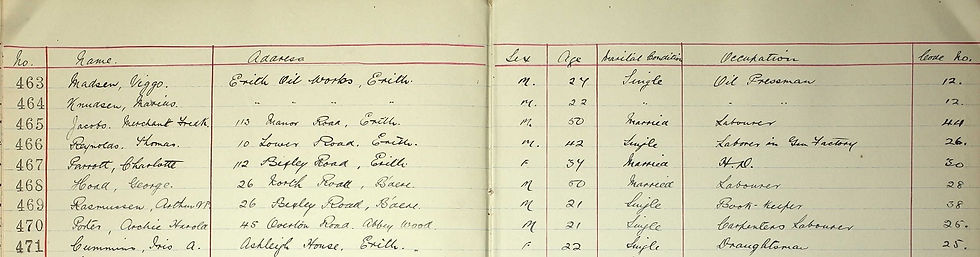 No. Name. Address Sex Age Marital Condition Occupation Code No.
463 Madsen, Viggo. Erith Oil Works, Erith. M. 24 Single Oil Pressman 12.
464 Knudsen, Marius. " " " " M. 22 " " " 12.
465 Jacobs. Merchant 113 Manor Road, Erith. M. 50 Married Labourer 44
466 Reynolds, Thomas. 10 Lower Road, Erith. M. 42 Single Laborer in Gun Factory 26.
467 Parrott, Charlotte 112 Bexley Road, Erith F 34 Married H.D. 30
468 Hoad, George. 26 North Road, M 50 Married Labourer 28
469 Rasmussen, Arthur 26 Bexley Road, M 21 Single Book-keeper 38
470 Archie Harold 45 Overton Road. Abbey Wood. M 21 Single Carpenters Labourer 25.
471 Cummins, Iris A. Ashleigh House, Erith. F 22 Single Draughtsman 25.